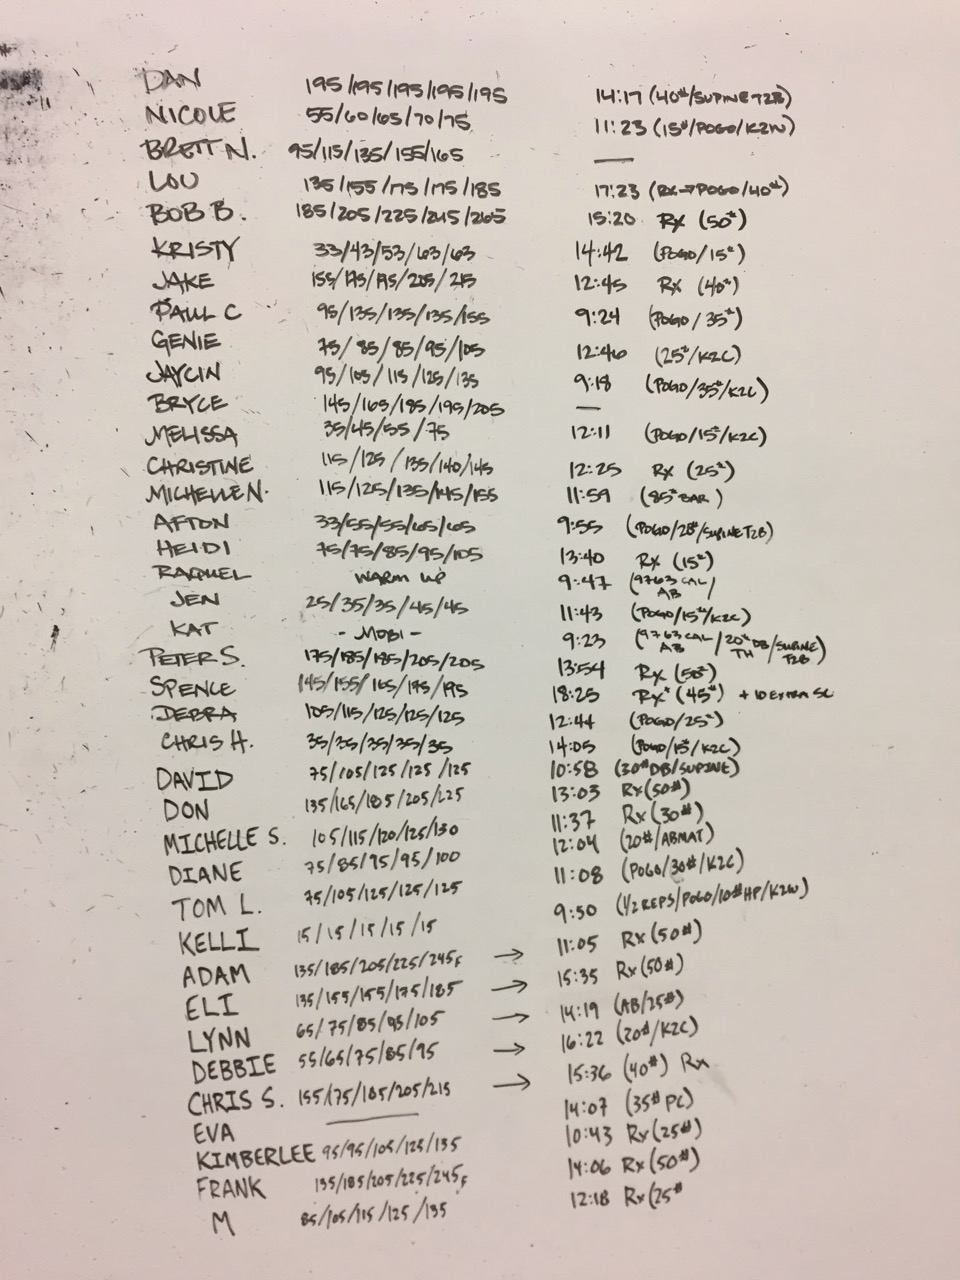 DAN 195/195/195/195/195 14:17 (40#/SUPINE T2B)
NICOLE 55/60/65/70/75 11:23 (15#/POGO/K2W)
BRETT N. 95/115/135/155/165 —
LOU 135/155/175/175/185 17:23 (RX→POGO/40#)
BOB B. 185/205/225/245/265 15:20 RX (50#)
KRISTY 33/43/53/63/63 14:42 (POGO/15#)
JAKE 155/175/195/205/215 12:45 RX (40#)
PAUL C 95/135/135/135/155 9:24 (POGO/35#)
GENIE 75/85/85/95/105 12:46 (25#/K2C)
JAYCIN 95/105/115/125/135 9:18 (POGO/35#/K2C)
BRYCE 145/165/185/195/205 —
MELISSA 35/45/55/75 12:11 (POGO/15#/K2C)
CHRISTINE 115/125/135/140/145 12:25 RX (25#)
MICHELLE N. 115/125/135/145/155 11:59 (85# BAR)
AFTON 33/55/55/65/65 9:55 (POGO/28#/SUPINE T2B)
HEIDI 75/75/85/95/105 13:40 RX (15#)
RAQUEL WARM UP 9:47 (9763 CAL/AB
JEN 25/35/35/45/45 11:43 (POGO/15#/K2C)
KAT - MOBI - 9:23 (9763 CAL AB/20# DB TH/SUPINE T2B)
PETER S. 175/185/195/205/205 13:54 RX (50#)
SPENCE 145/155/165/175/195 18:25 RX* (45#) + 10 EXTRA SC
DEBRA 105/115/125/125/125 12:44 (POGO/25#)
CHRIS H. 35/35/35/35/35 14:05 (POGO/15#/K2C)
DAVID 75/105/125/125/125 10:58 (30# DB/SUPINE)
DON 135/165/185/205/225 13:03 Rx (50#)
MICHELLE S. 105/115/120/125/130 11:37 Rx (30#)
DIANE 75/85/95/95/100 12:04 (20#/ABMAT)
TOM L. 75/105/125/125/125 11:08 (POGO/30#/K2C)
KELLI 15/15/15/15/15 9:50 (1/2 REPS/POGO/10# HP/K2W)
ADAM 135/185/205/225/245F → 11:05 Rx (50#)
ELI 135/155/155/175/185 → 15:35 Rx (50#)
LYNN 65/75/85/95/105 → 14:19 (AB/25#)
DEBBIE 55/65/75/85/95 → 16:22 (20#/K2C)
CHRIS S. 155/175/185/205/215 → 15:36 (40#) Rx
EVA — 14:07 (35# PC)
KIMBERLEE 95/95/105/125/135 10:43 Rx (25#)
FRANK 135/185/205/225/245F 14:06 Rx (50#)
M 85/105/115/125/135 12:18 Rx (25#